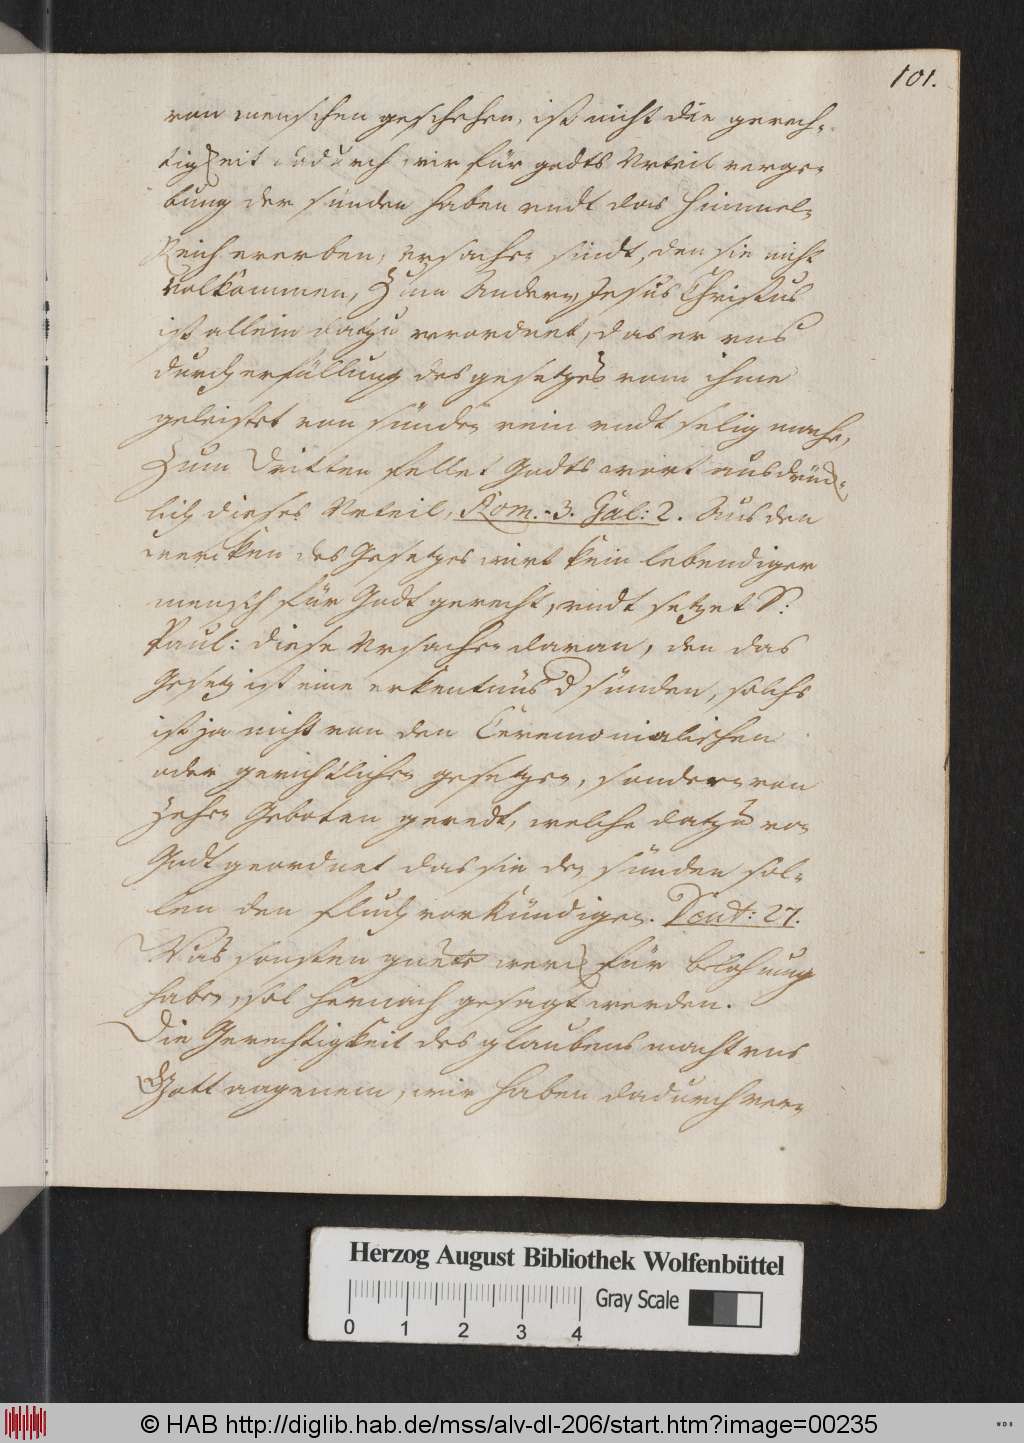 101.
von menschen geschehen, ist nicht die gerech-
tigkeit dadurch wir für godts Vrteil verge-
bung der sünden haben vndt das Himmel-
Reich ererben, vrsachen sindt, den sie nicht
volkommen, Zum Andern Jesus Christus
ist allein datzu verordnet, das er vns
durch erfüllung des gesetzes vom ihme
geleistet von sünden rein vndt selig mache,
Zum Dritten fellet Godts wort ausdrück-
lich dieses Vrteil, Rom. 3. Gal: 2. Aus den
wercken des Gesetzes wirt kein lebendiger
mensch für Godt gerecht, vndt setzet S:
Paul: diese Vrsachen daran, den das
Gesetz ist eine erkentnüs d sünden, solchs
ist ja nicht von den Ceremonialischen
oder gerichtlichen gesetzen, sondern von
Zehen Geboten geredt, welche datzu von
Godt geordnet das sie den sünden sol-
len den fluch vorkündigen. Deut: 27.
Was sonsten guete werck für belohnung
haben, sol hernach gesagt werden.
Die Gerechtigkeit des glaubens macht vns
Gott angenem, wir haben dadurch ver-
Herzog August Bibliothek Wolfenbüttel
Gray Scale
0 1 2 3 4
© HAB http://diglib.hab.de/mss/alv-dl-206/start.htm?image=00235